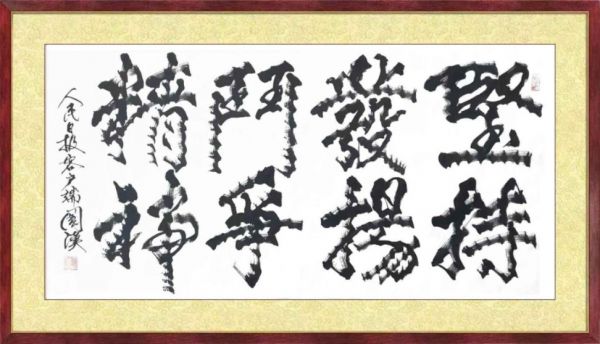 堅持
發揚
鬥爭
精神
人民日报客户端